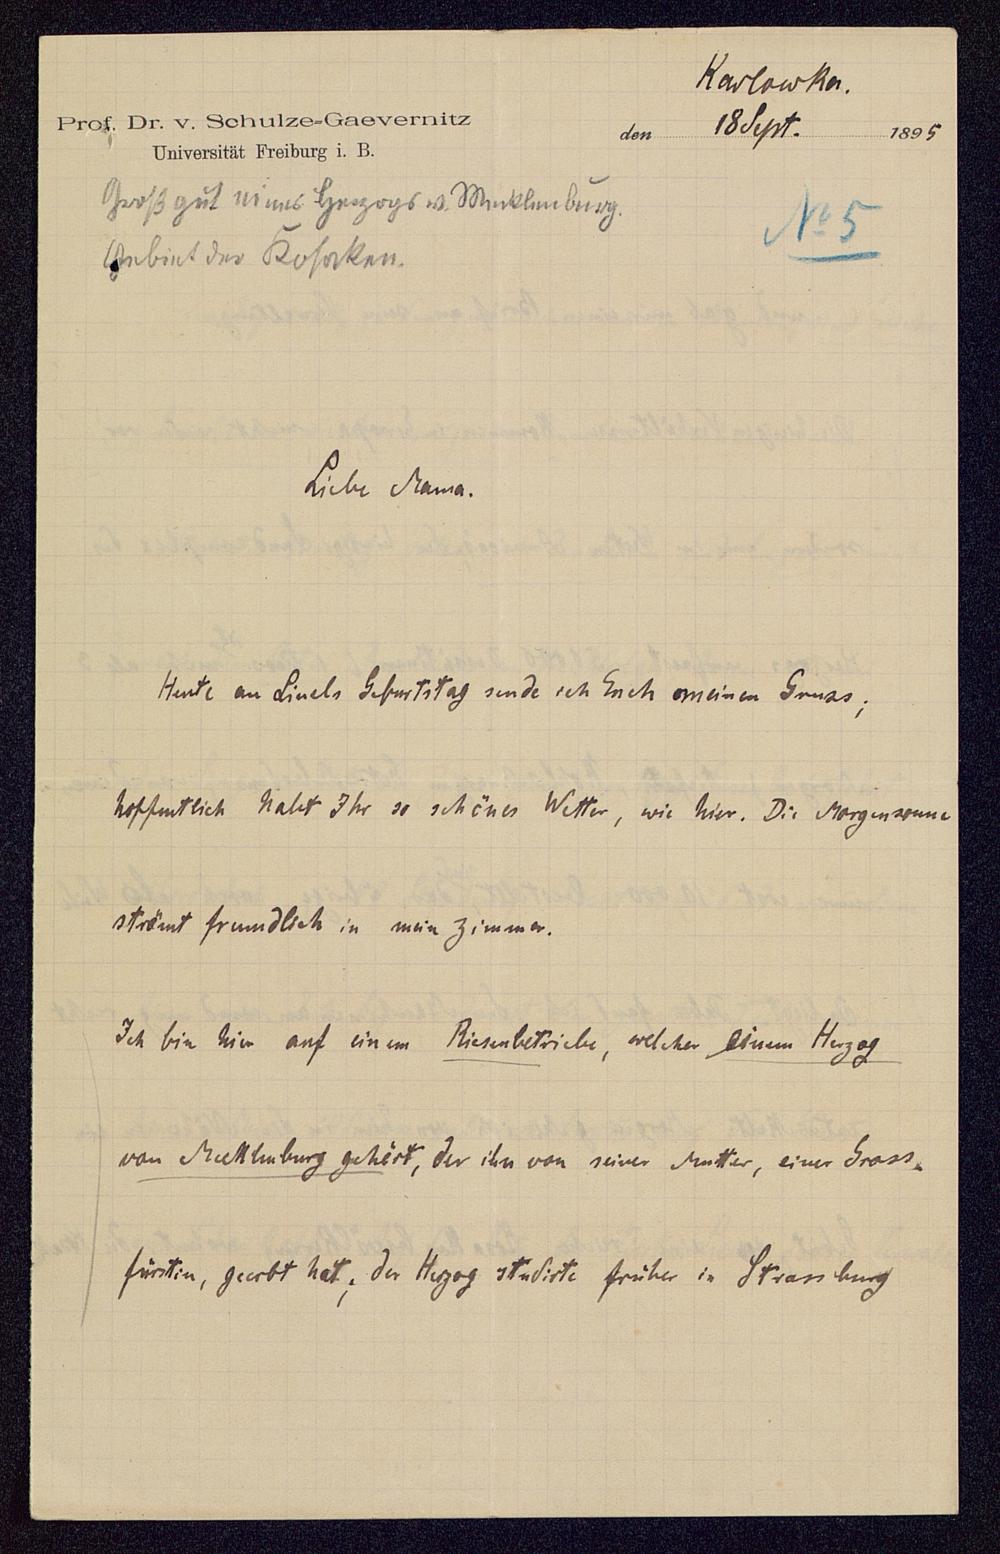 Karlowka.
Prof. Dr. v. Schulze-Gaevernitz
den 18 Sept. 1895
Universität Freiburg i. B.
Großgut eines Herzogs v. Mecklenburg.
No 5
Gebiet der Kosaken.
Liebe Mama.
Heute an Linels Geburtstag sende ich Euch meinen Gruss;
hoffentlich habt Ihr so schönes Wetter, wie hier. Die Morgensonne
strömt freundlich in mein Zimmer.
Ich bin hier auf einem Riesenbetriebe, welcher einem Herzog
von Mecklenburg gehört, der ihn von seiner Mutter, einer Gross-
fürstin, geerbt hat; der Herzog studirte früher in Strassburg